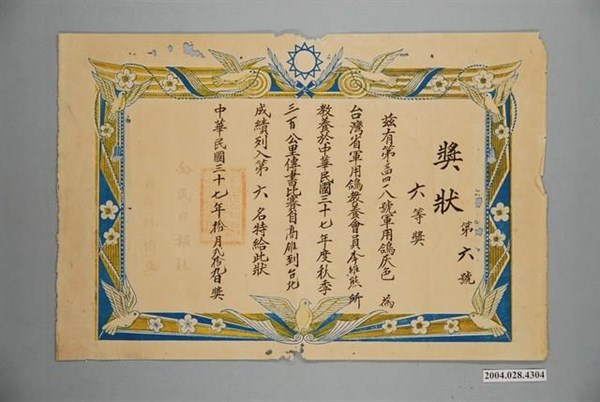 獎狀
第六號
六等獎
茲有第 四一八號軍用鴿灰色 為
台灣省軍用鴿教養會員李維熊所
教養於中華民國三十七年度秋季
三百公里傳書比賽自高雄到台北
成績列入第六名特給此狀
中華民國三十七年拾月 日獎
2004.028.4304